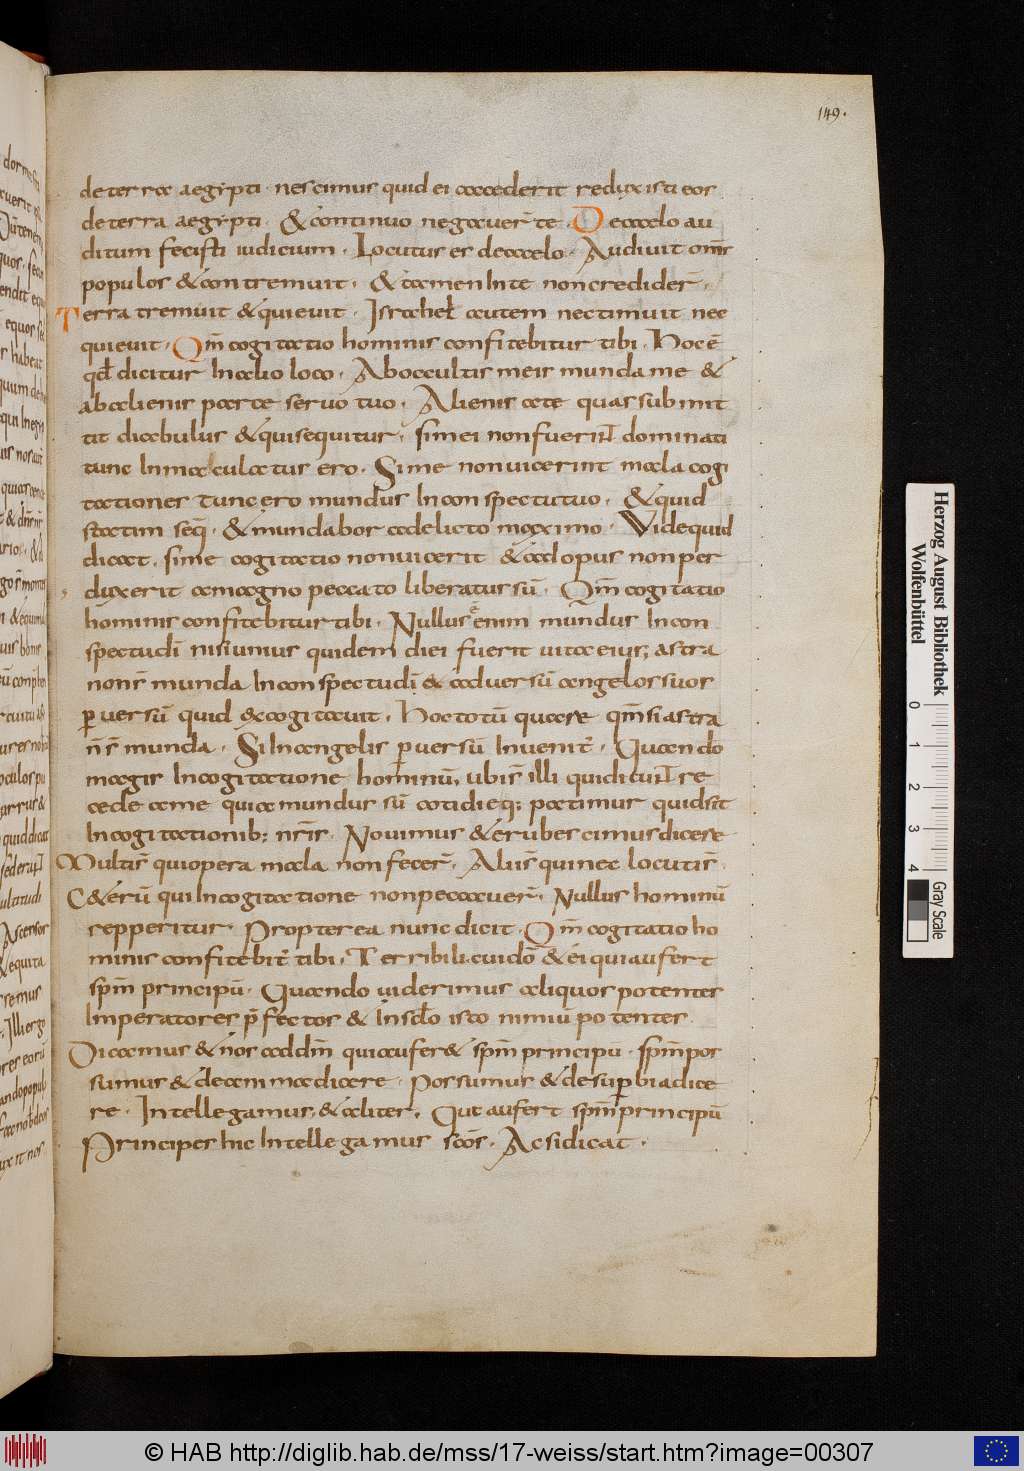 149.
de terrae aegypti · nescimus quid ei acciderit reduxisti eos
de terra aegypti · & continuo negauer̄ te · De caelo au
ditum fecisti iudicium · Locutus es de caelo · Audiuit om̄s
populos & contremuit · & tamen In te non credider̄ ·
Terra tremuit & quieuit · Israhel autem nec timuit nec
quieuit · Qm̄ cogitatio hominis confitebitur tibi · Hoc ē
qđ dicitur In alio loco · Ab occultis meis munda me &
ab alienis parce seruo tuo · Alienis a te quas submit
tit diabulus & qui sequitur · si mei non fuerint dominati
tunc Inmaculatus ero · Si me non uicerint mala cogi
tationes tunc ero mundus In conspectu tuo · & quid
statim seq̄ · & mundabor a delicto maximo · Vide quid
dicat · si me cogitatio non uicerit & ad opus non per
duxerit a magno peccato liberatus sū · Qm̄ cogitatio
hominis confitebitur tibi · Nullus enim mundus In con
spectu dī nisi unius quidem diei fuerit uita eius; astra
non s̄ munda In conspectu dī & aduersū angelos suos
peruersū quid excogitauit · Hoc totū quare qm̄ si astra
n̄ s̄ munda · Si In angelis peruersū Inuenit̄ · Quando
magis In cogitatione hominū, ubi s̄ illi qui dicunt re
cede a me quia mundus sū cotidieq; patimur quid sit
In cogitationib; nr̄is · Nouimus & erubescimus dicere
Multi s̄ qui opera mala non fecer̄ · Alii s̄ qui nec locuti s̄ ·
C&erū qui In cogitatione non peccauer̄ · Nullus hominū
repperitur · Propterea nunc dicit · Qm̄ cogitatio ho
minis confitebit̄ tibi · Terribili cuidō & ei qui aufert
spm̄ principū · Quando uiderimus aliquos potentes
Imperatores p̄fectos & In sc̄lo isto nimiū potentes
Dicamus & nos ad dn̄m qui aufer& spm̄ principū · spm̄ pos
sumus & de ammadicare · Possumus & de superbia dice
re · Intellegamus, & aliter · Qui aufert spm̄ principū
Principes hic Intellegamus sc̄os · Ac si dicat ·
Herzog August Bibliothek
Wolfenbüttel
0 1 2 3 4
Gray Scale
© HAB http://diglib.hab.de/mss/17-weiss/start.htm?image=00307